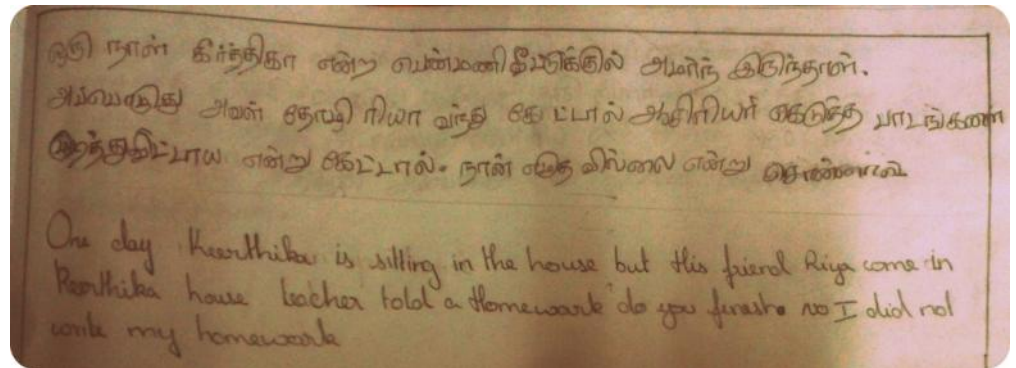 ஒரு நாள் கீர்த்திகா என்ற பெண்மணி வீட்டுக்கில் அமர்ந் இருந்தாள்.
அப்பொழுது அவள் தோழி ரியா வந்து கேட்டால் ஆசிரியர் கெடுத்த பாடங்கண
என்று கேட்டால். நான் எழுத வில்லை என்று
One day Keerthika is sitting in the house but this friend Riya come in
Keerthika house teacher told a Homework do you finash no I did not
write my homework